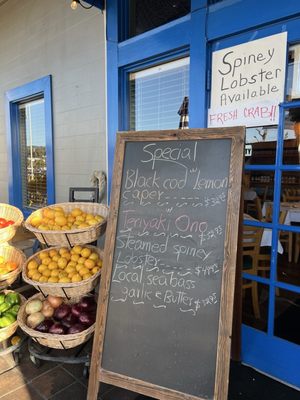 Spiney
Lobster
Available
FRESH CRAB!!
Special
Black cod Lemon
caper
Teriyaki Ono
Steamed spiney
Lobster
Local sea bass
garlic & Butter